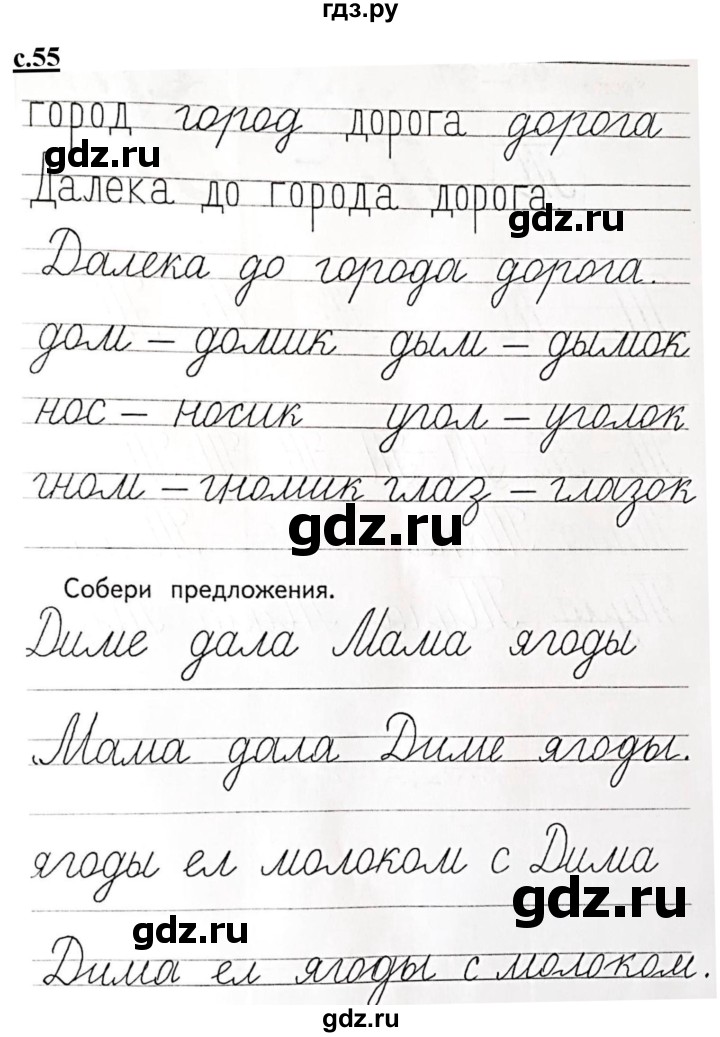 гдз.ру
с.55
город город дорога дорога
gdz.ru
Далека до города дорога.
gdz.ru
Далека до города дорога.
дом – домик дым – дымок
нос – носик угол – уголок
гном – гномик глаз – глазок
gdz.ru
Собери предложения.
Диме дала Мама ягоды
Мама дала Диме ягоды.
ягоды ел молоком с Дима
gdz.ru
gdz.ru
Дима ел ягоды с молоком.
gdz.ru